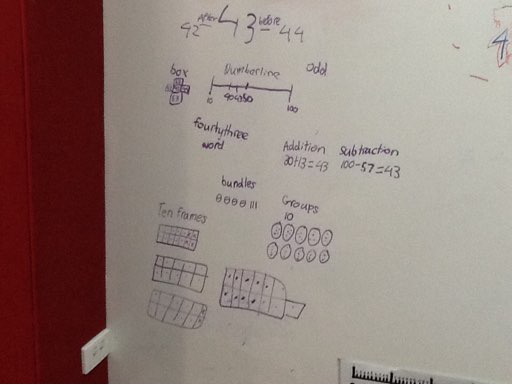 42 After 43 before 44
box
Numberline
Odd
10 40 43 50 100
fourtythree
word
Addition
30+13=43
Subtraction
100-57=43
bundles
Groups
10
Ten Frames